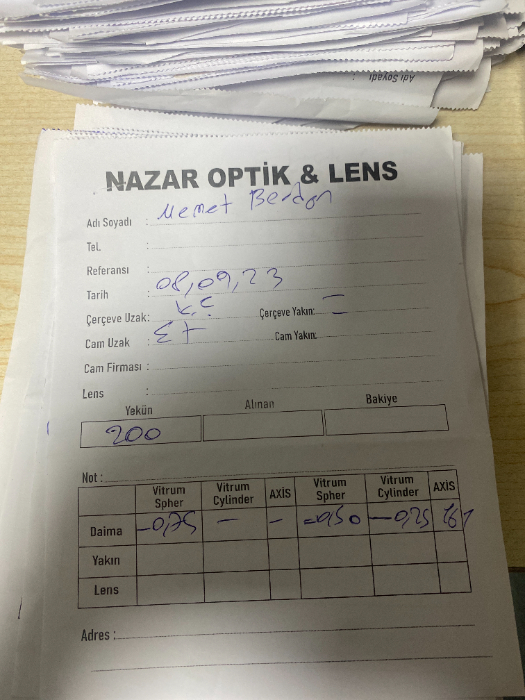 Adı Soyadı :
NAZAR OPTİK & LENS
Adı Soyadı : Memet Berdan
Tel. :
Referansı :
Tarih : 08,09,23
Çerçeve Uzak: K.Ç Çerçeve Yakın: —
Cam Uzak : Cam Yakın:
Cam Firması :
Lens :
Yekün Alınan Bakiye
200
Not :
Vitrum Spher Vitrum Cylinder AXİS Vitrum Spher Vitrum Cylinder AXİS
Daima -0,75 — - -0,50 -0,25 161
Yakın
Lens
Adres :